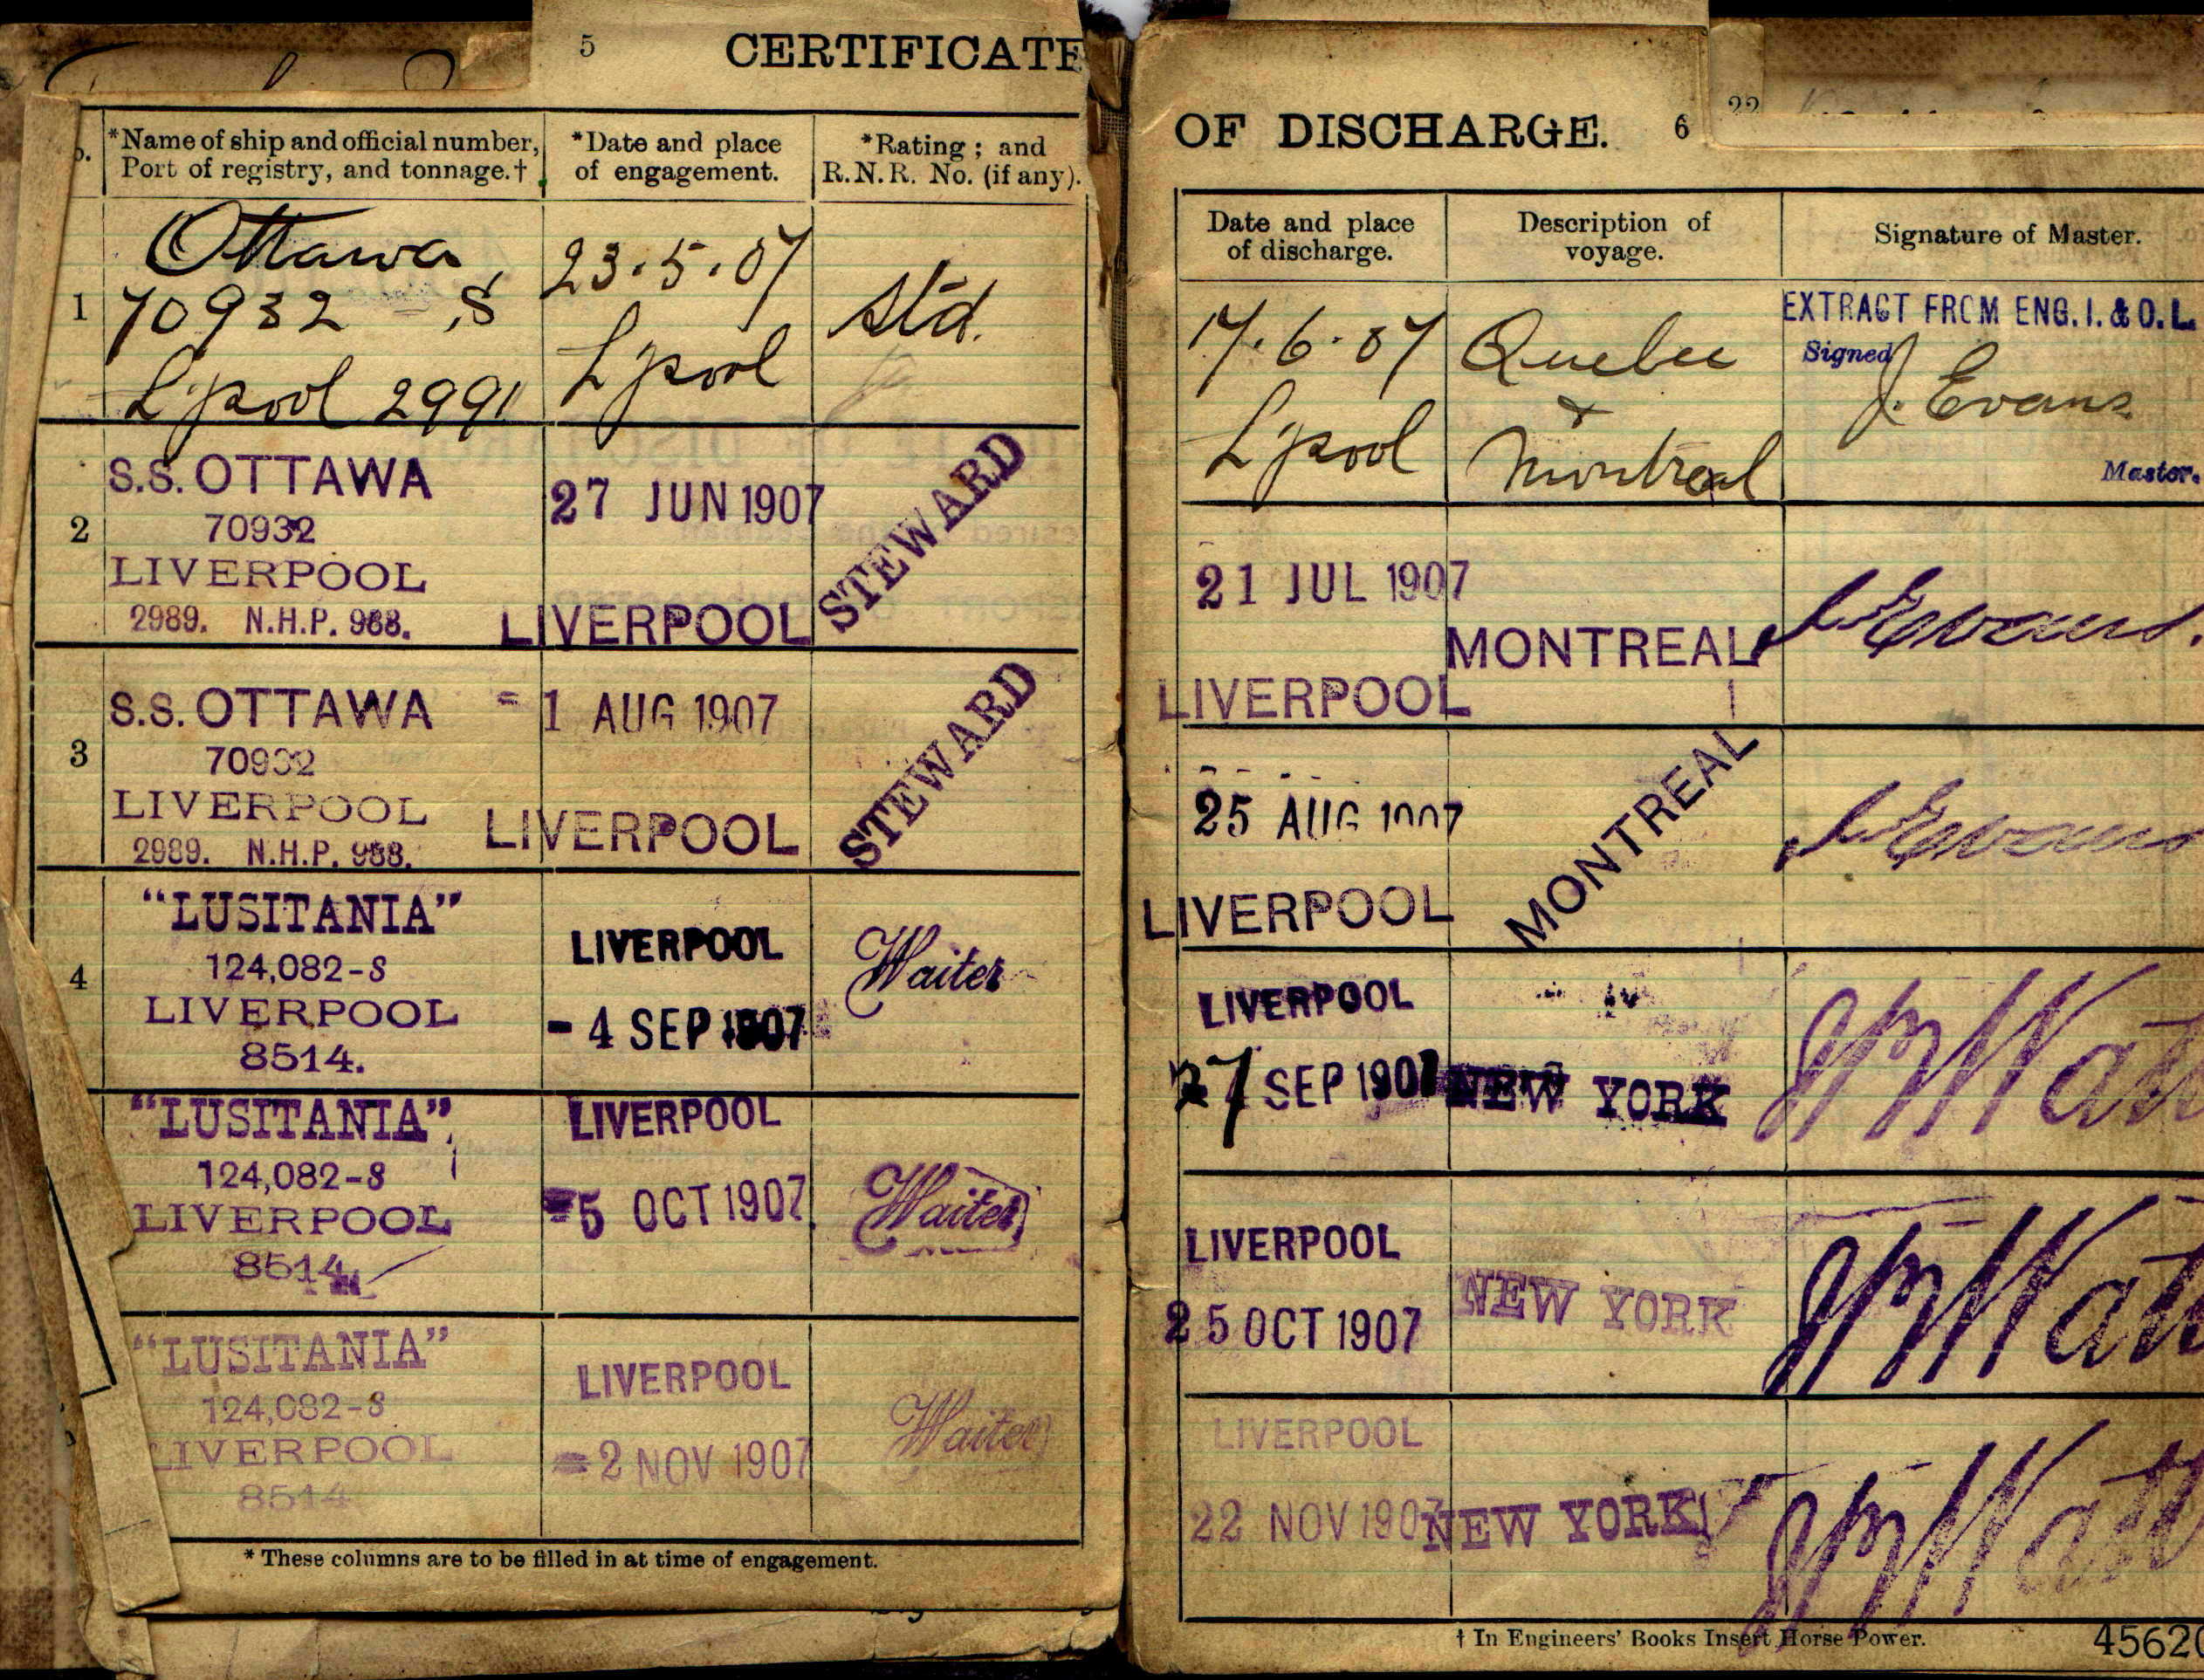 5
CERTIFICATE
*Name of ship and official number,
Port of registry, and tonnage.†
*Date and place
of engagement.
*Rating; and
R.N.R. No. (if any).
1
Ottawa
70932 S
L'pool 2991
23.5.07
L'pool
Std.
2
S.S. OTTAWA
70932
LIVERPOOL
2989. N.H.P. 988.
27 JUN 1907
LIVERPOOL
STEWARD
3
S.S. OTTAWA
70932
LIVERPOOL
2989. N.H.P. 988.
1 AUG 1907
LIVERPOOL
STEWARD
4
"LUSITANIA"
124,082-S
LIVERPOOL
8514.
LIVERPOOL
- 4 SEP 1907
Waiter
"LUSITANIA"
124,082-S
LIVERPOOL
8514
LIVERPOOL
-5 OCT 1907
Waiter
"LUSITANIA"
124,082-S
LIVERPOOL
8514
LIVERPOOL
-2 NOV 1907
Waiter
* These columns are to be filled in at time of engagement.
OF DISCHARGE. 6
22
Date and place
of discharge.
Description of
voyage.
Signature of Master.
17.6.07
L'pool
Quebec
+
Montreal
EXTRACT FROM ENG. 1. & O. L.
Signed
J. Evans
Master.
21 JUL 1907
LIVERPOOL
MONTREAL
J Evans.
25 AUG 1907
LIVERPOOL
MONTREAL
J Evans
LIVERPOOL
27 SEP 1907
NEW YORK
LIVERPOOL
25 OCT 1907
NEW YORK
LIVERPOOL
22 NOV 1907
NEW YORK
† In Engineers' Books Insert Horse Power.
4562